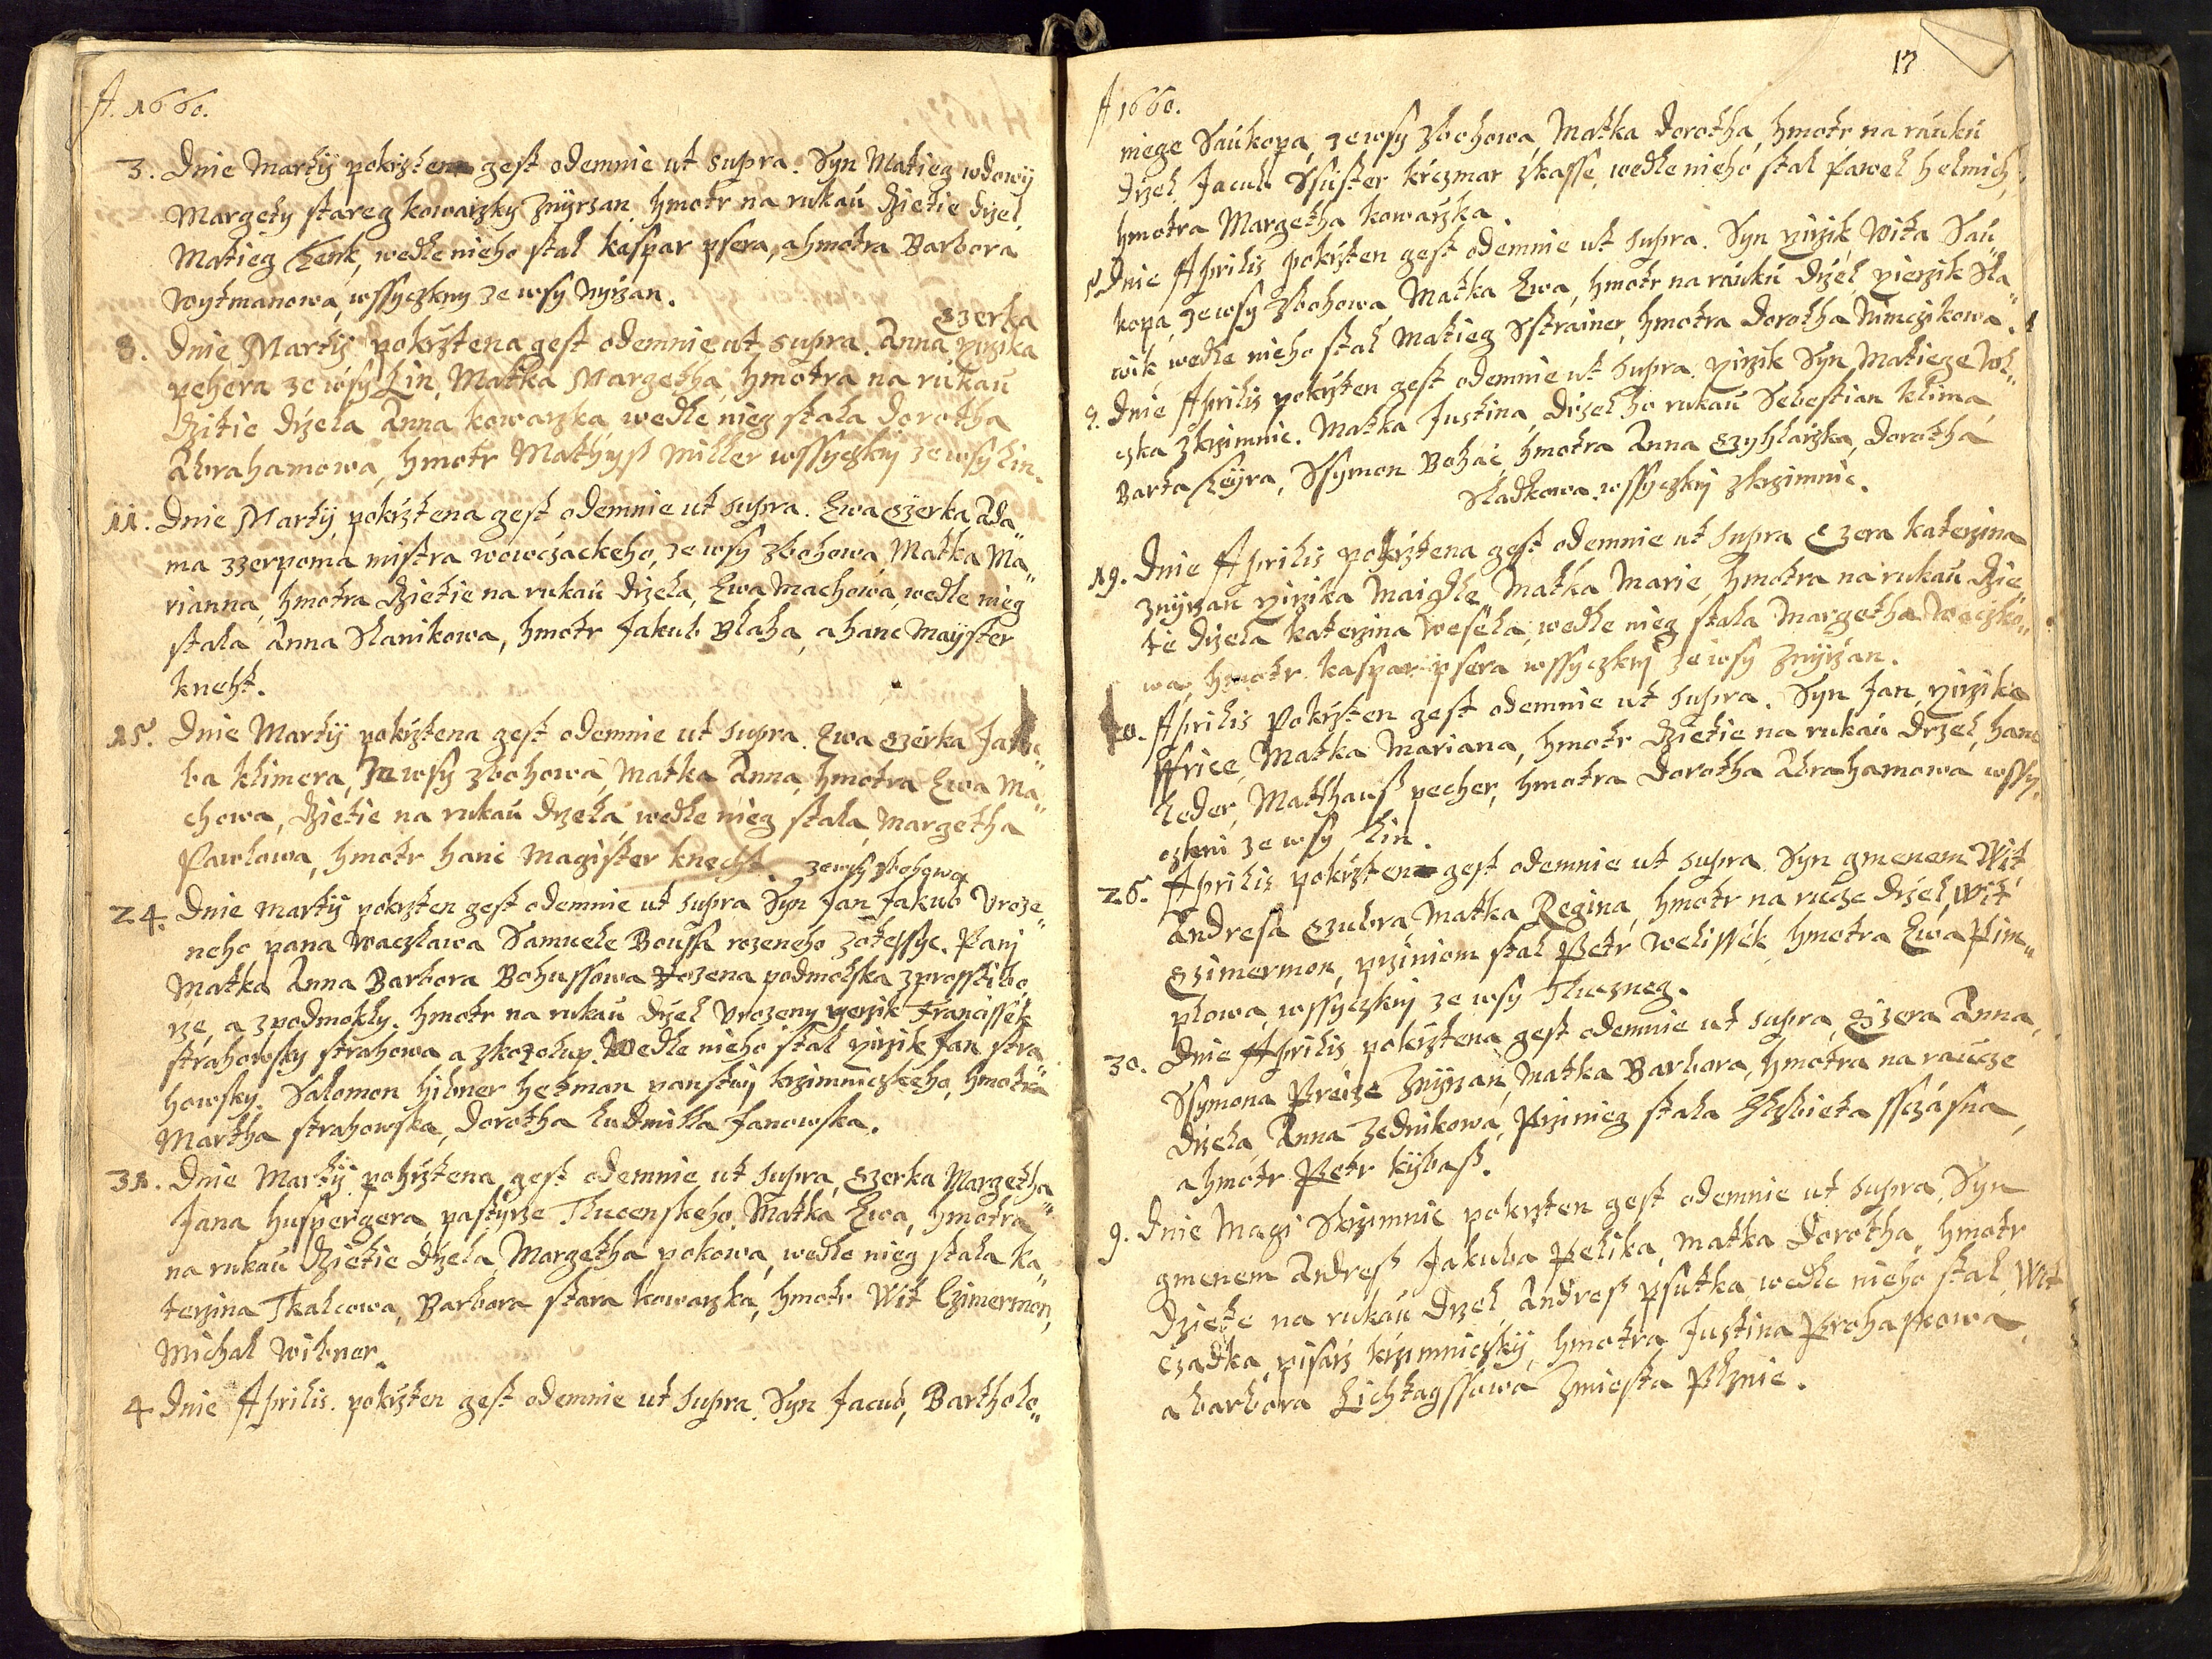 A. 1660.
3. Dnie Martij pokrzten gest odemnie ut supra. Syn Matieg wdowij
Margety stareg kowarzky Znyrzan hmotr na rukau dzietie drzel
Matieg Lenk, wedle nieho stal kaspar psera, a hmotra Barbora
Woytmanowa, wssyczkny ze wsy Nyrzan.
czerka
8. Dnie Martij pokrztena gest odemnie ut supra. Anna yirzika
pehera ze wsy Lin, Matka Margetha, hmotra na rukau
dzitie drzela Anna kowarzka wedle nieg stala dorotha
Abrahamowa, hmotr Mathyß Miller wssyczknj ze wsy Lin.
11. Dnie Martij pokrztena gest odemnie ut supra. Ewa czerka Ada„
ma zzerpoma mistra wowczackeho, ze wsy zbohowa, Matka Ma„
rianna, hmotra dzietie na rukau drzela, Ewa Machowa, wedle nieg
stala Anna Slanikowa, hmotr Jakub Blaha, a hanc Mayster
kneht.
15. Dnie Martij pokrztena gest odemnie ut supra. Ewa czerka Jaku„
ba klimera, ze wsy zbohowa, Matka Anna, hmotra Ewa Ma„
chowa, dzietie na rukau drzela, wedle nieg stala Margetha
Pawlowa, hmotr hanc Magister knecht. ze wsy zbohowa
24. Dnie Martij pokrzten gest odemnie ut supra Syn Jan Jakub Uroze„
neho pana Waczlawa Samuele Boussa rozeneho zotessyc. Panj
Matka Anna Barbora Bohussowa rozena podmokska zprosstibo„
rze, a zpodmokly. hmotr na rukau drzel Urozeny yerzik Francissek
strahowsky strahowa a zkozolup. Wedle nieho stal yirzik Jan stra„
howsky. Salomon hibner hetman panstwj krzimniczkeho, hmotra
Martha strahowska, dorotha ludmilla Janowska.
31. Dnie Martij pokrztena gest odemnie ut supra, czerka Margetha
Jana huspergera, pastyrze Tlucenskeho. Matka Ewa, hmotra
na rukau dzietie drzela Margetha pokowa, wedle nieg stala Ka„
terzina Tkalcowa, Barbora stara kowarzka, hmotr Wit Czimermon,
Michal Wibner.
4 Dnie Aprilis. pokrzten gest odemnie ut supra. Syn Jacub, Bartholo„
17
A 1660.
miege Saukopa, ze wsy zbohowa, Matka dorotha, hmotr na rauku
drzel Jacub Ssuster krczmar zkasse, wedle nieho stal Pawel helmich,
hmotra Margetha kowarzka.
5. Dnie Aprilis pokrzten gest odemnie ut supra. Syn yirzik Wita Sau„
kopa, ze wsy zbohowa Matka Ewa, hmotr na rauku drzel yierzik Sla„
wik wedle nieho stal Matieg Sstrainer, hmotra dorotha Nimczikowa.
9. Dnie Aprilis pokrzten gest odemnie ut supra. yirzik Syn Matiege Wol„
czka zkrzimnic. Matka Justina, drzel ho rukau Sebestian klima,
Barta Leyra, Ssymon Bohac, hmotra Anna czyhlarzka, dorotha
Sladkowa wssyczknj zkrzimnic.
19. Dnie Aprilis pokrztena gest odemnie ut supra czera katerzina
znyrzan yirzika Maidle, Matka Marie, hmotra na rukau dzie„
tie drzela katerzina Wesela, wedle nieg stala Margetha Waczko„
wa, hmotr kaspar psera wssyczknj ze wsy Znyrzan.
0. Aprilis Pokrzten gest odemnie ut supra. Syn Jan yirzika
ffrice, Matka Mariana, hmotr dzietie na rukau drzel, hanc
leder, Matthauß pecher, hmotra dorotha Abrahamowa wssy„
czkni ze wsy Lin.
26. Aprilis pokrzten gest odemnie ut supra. Syn gmenem Wit
Andresa czubra, Matka Regina, hmotr na rucze drzel, Wit
Czimermon, przi niom stal Petr welissek, hmotra Ewa Pim„
plowa, wssyczknj ze wsy Tluczneg.
30. Dnie Aprilis pokrztena gest odemnie ut supra, czera Anna,
Ssymona Preize Znyrzan, Matka Barbora, hmotra na raucze
drzela Anna zednikowa, Przi nieg stala Elzbieta ssczasna,
a hmotr Petr kybaß.
9. Dnie Magi Skrzimnic pokrzten gest odemnie ut supra, Syn
gmenem Andreß Jakuba Pelika, Matka dorotha, hmotr
dziete na rukau drzel Andreß psutka, wedle nieho stal, Wit
czadka, pisarz krzimniczky, hmotra Justina Prohaskowa,
a barbora Lichtagssowa zmiesta Plznie.